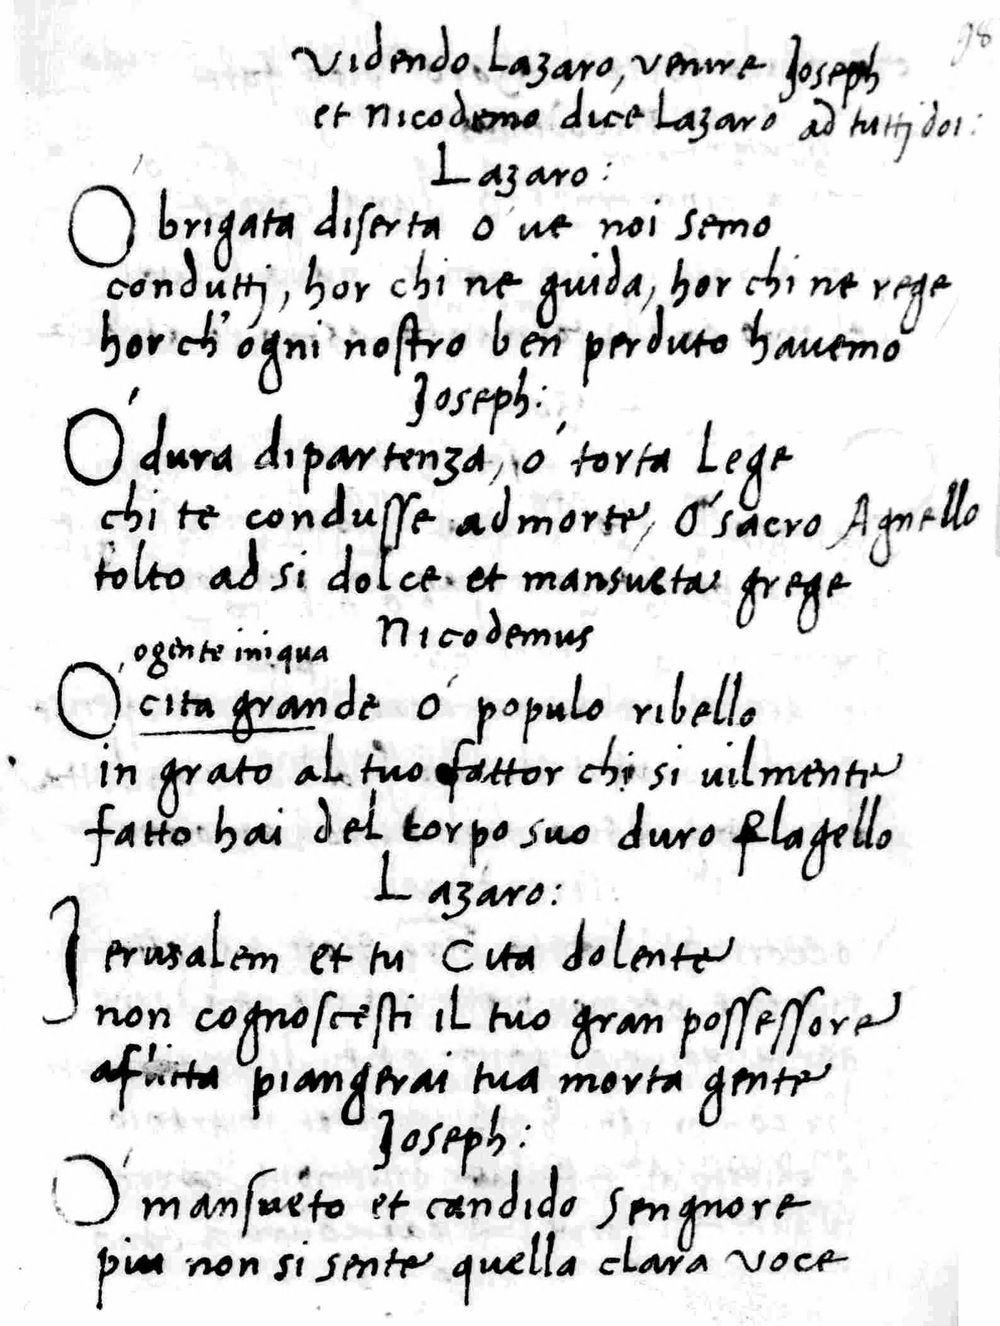 98
Videndo Lazaro, venire Joseph
et Nicodemo dice Lazaro ad tuttj doi:
Lazaro:
O brigata diserta o' ve noi semo
conduttj, hor chi ne guida, hor chi ne rege
hor ch'ogni nostro ben perduto havemo
Joseph:
O' dura dipartenza, o' torta Lege
chi te condusse ad morte, O' sacro Agnello
tolto ad si dolce et mansueta grege
Nicodemus
o gente iniqua
O cita grande o' populo ribello
in grato al tuo fattor chi si vilmente
fatto hai del corpo suo duro flagello
Lazaro:
Jerusalem et tu Cita dolente
non cognoscesti il tuo gran possessore
aflitta piangerai tua morta gente
Joseph:
O' mansueto et candido Sengnore
piu non si sente quella clara voce